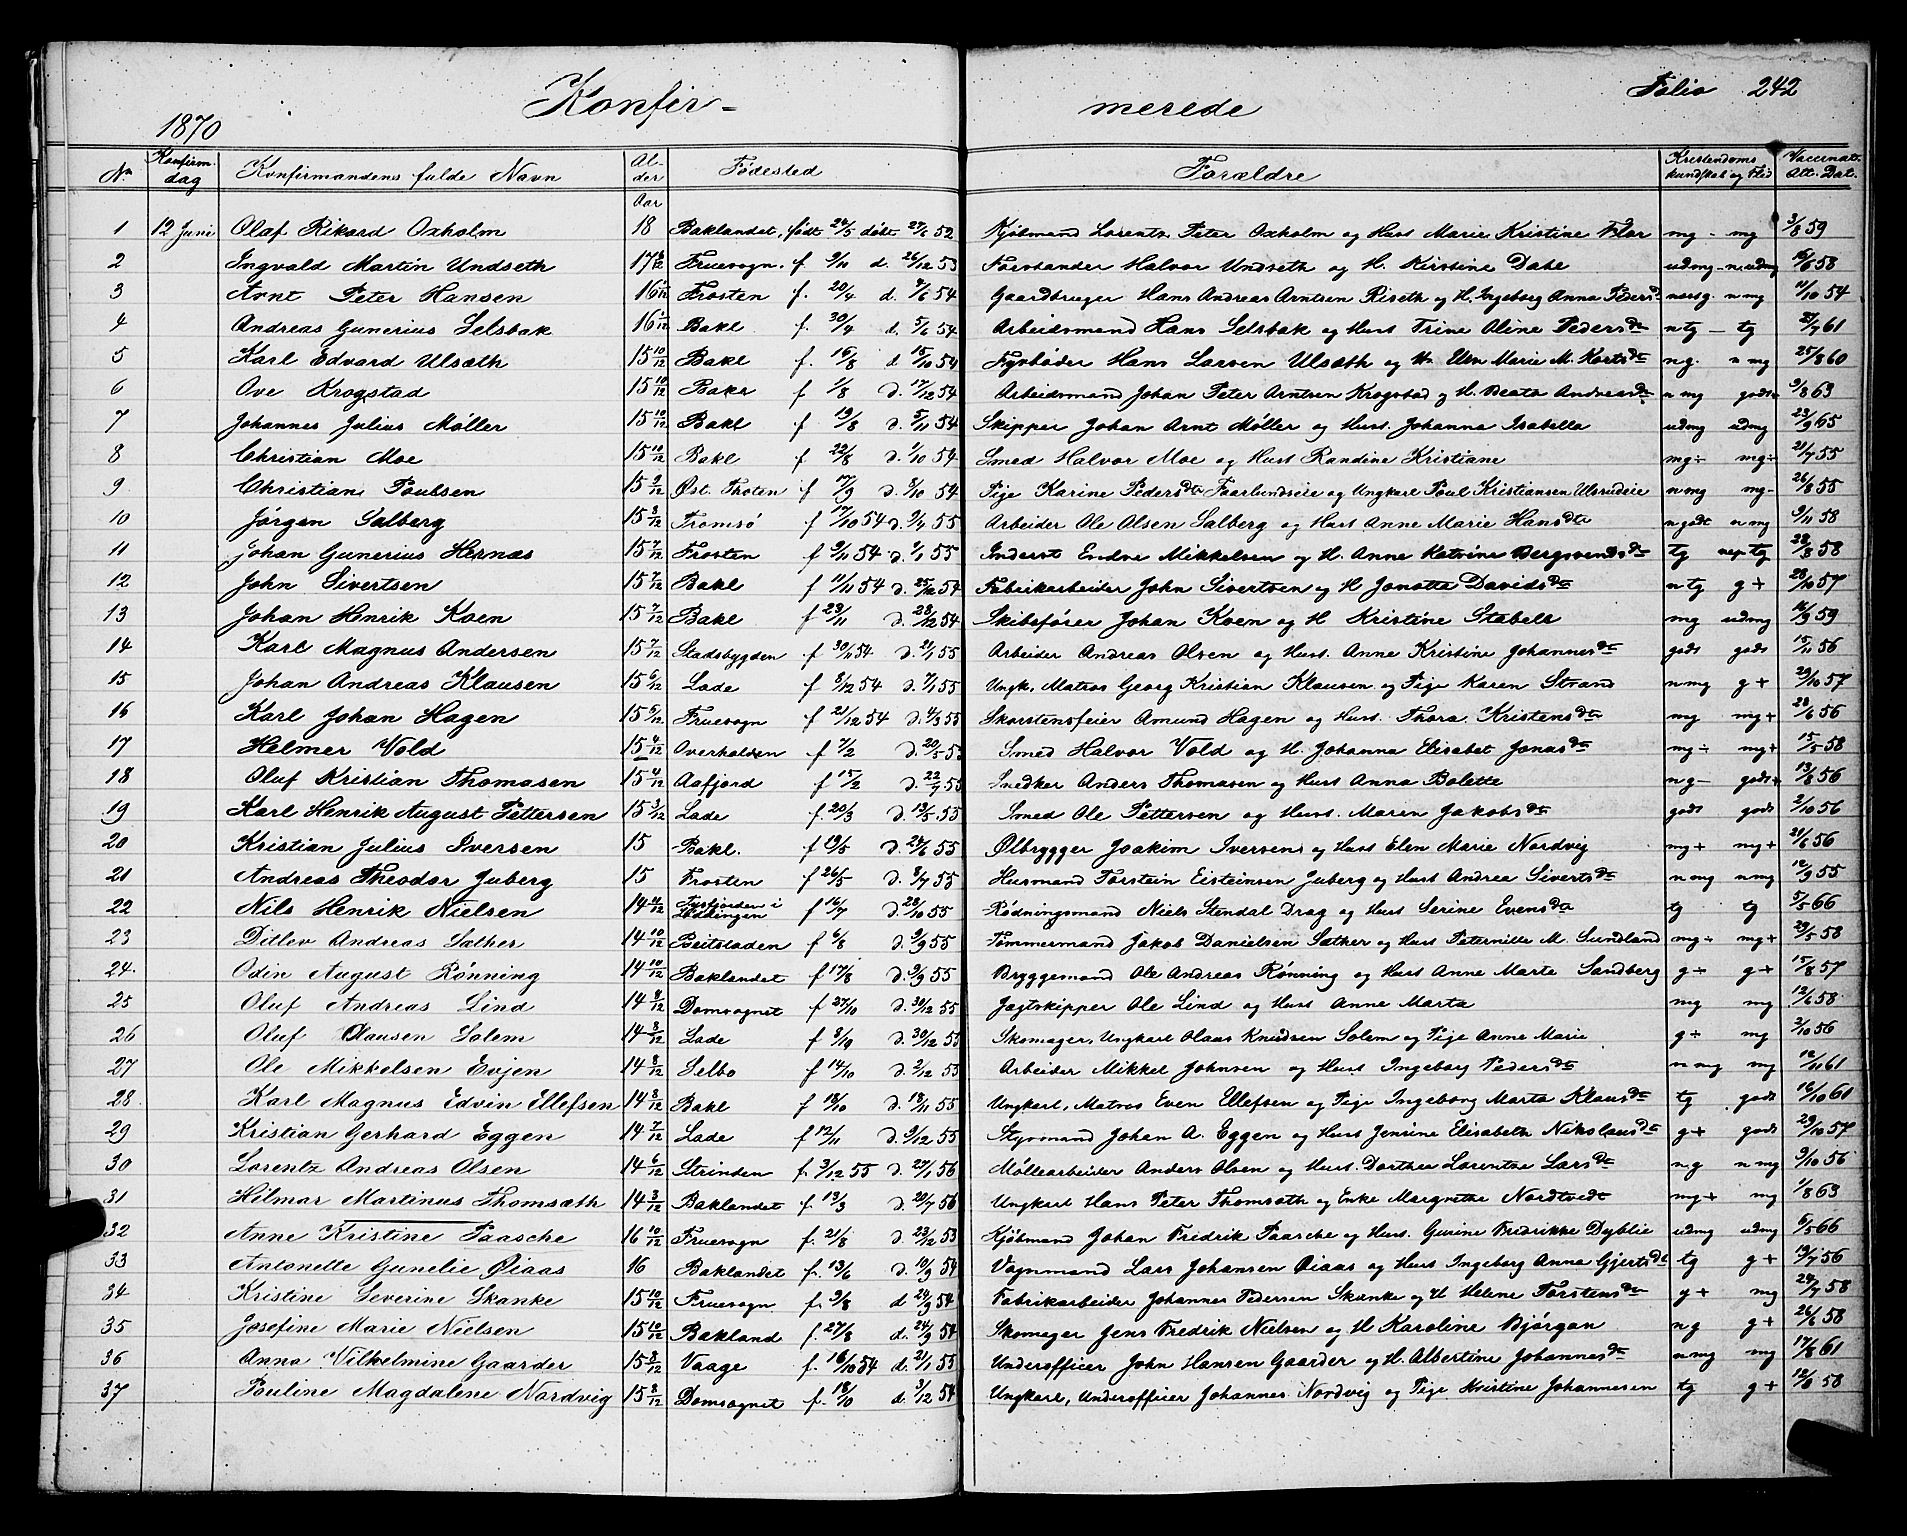 Konfir- merede Folio 242
1870
No Konfirm. dag Konfirmandens fulde Navn Al- der Fødested Forældre Kristendoms kundskab og Flid Vaccinat. Att. Dat.
Aar
1 12 Juni Olaf Rikard Oxholm 18 Baklandet, født 24/5 døbt 52 Kjöbmand Lorentz Peter Oxholm og Hust Marie Kristine Flor mg - mg 3/8 59
2 Ingvald Martin Undseth 17 Fruesogn. f. 9/11 d. 26/12 53 Forstander Halvor Undseth og H. Kirstine Dahl udmg 58
3 Arnt Peter Hansen 16 Frosten f. 20/4 d. 4/6 54 Gaardbruger Hans Andreas Arntsen Riseth og H. Ingeborg Anna Pedersdtr n mg 11/10 54
4 Andreas Gunerius Selsbak 16 1/12 Bakl. f. 30/4 d. 5/6 54 Arbeidsmand Hans Selsbak og Hust Trine Oline Pedersdtr ntg - tg 27/7 61
5 Karl Edvard Ulsæth 15 10/12 Bakl f. 16/8 d 15/10 54 Fyrbøder Hans Larsen Ulsæth og Elen Marie M. Kortsdtr n g. n mg 25/8 60
6 Ove Krogstad 15 10/12 Bakl f 1/8 d. 17/12 54 Arbeidsmand Johan Peter Arntsen Krogstad og H. Beata Andreasdtr n mg godt 9/8 63
7 Johannes Julius Møller 15 10/12 Bakl f 19/8 d. 5/11 54 Skipper Johan Arnt Møller og Hust. Johanna Isabella udmg udmg 23/9 65
8 Christian Moe 15 10/12 Bakl f 22/8 d. 1/10 54 Smed Halvor Moe og Hust Randine Kristiane mg÷ mg÷ 21/7 55
9 Christian Poulsen 15 9/12 Øst. Thoten f 17/9 d. 8/10 54 Pige Karine Pedersdtr Faarlundseie og Ungkarl Poul Kristiansen Ulsrudeie n mg mg- 26/8 55
10 Jørgen Salberg 15 8/12 Tromsø f 17/10 54 d. 9/4 55 Arbeider Ole Olsen Salberg og Hust Anne Marie Hansdtr n godt n mg 9/11 58
11 Johan Gunerius Hernæs 15 7/12 Frosten f 9/11 54 d. 1/1 55 Inderst Endre Mikkelsen og H. Anne Katrine Bergsvendsdtr tg neptg 28/8 58
12 John Sivertsen 15 7/12 Bakl f 11/11 54 d. 25/12 54 Fabrikarbeider John Sivertsen og H Jonetta Davidsdtr n tg g + 28/10 57
13 Johan Henrik Koen 15 7/12 Bakl f 23/11 d. 28/12 54 Skibsfører Johan Koen og H Kristine Stabell mg udmg 16/9 59
14 Karl Magnus Andersen 15 7/12 Stadsbygden f 30/11 54 d. 21/1 55 Arbeider Andreas Olsen og Hust. Anne Kristine Johannesdtr godt godt 15/11 56
15 Johan Andreas Klausen 15 6/12 Lade f 8/12 54 d. 7/1 55 Ungk. Matros Georg Kristian Klausen og Pige Karen Strand n mg g + 29/10 57
16 Karl Johan Hagen 15 5/12 Fruesogn f 21/12 54 d. 4/3 55 Skorstensfeier Amund Hagen og Hust. Thora Kristensdtr mg mg+ 28/6 56
17 Helmer Vold 15 4/12 Overhalden f 7/2 d. 20/5 55 Smed Halvor Vold og H. Johanna Elisabet Jonasdtr mg÷ mg+ 15/5 58
18 Oluf Kristian Thomasen 15 4/12 Aafjord f 15/2 d. 22/7 55 Snedker Anders Thomasen og Hust Anna Bolette n g - godt 13/8 56
19 Karl Henrik August Pettersen 15 3/12 Lade f. 20/3 d. 13/5 55 Smed Ole Pettersen og Hust. Maren Jakobsdtr godt godt 2/10 56
20 Kristian Julius Iversen 15 Bakl. f 19/5 d. 24/6 55 Ølbrygger Joakim Iversen og Hust Elen Marie Nordvig mg+ mg+ 21/6 56
21 Andreas Theodor Juberg 15 Frosten f 26/5 d. 8/7 55 Husmand Torstein Eisteinsen Juberg og Hust Andrea Sivertsdtr n mg n mg 12/9 55
22 Nils Henrik Nielsen 14 11/12 Tysfjorden i Lødingen f 16/7 d. 28/10 55 Rødningsmand Niels Stendal Drag og Hust Serine Evensdtr tg tg 5/5 66
23 Ditlev Andreas Sæther 14 10/12 Beitstaden f 6/8 d. 9/9 55 Tømmermand Jakob Danielsen Sæther og Hust Peternille M. Sundland mg÷ mg+ 29/5 58
24. Odin August Rönning 14 10/12 Baklandet f 17/8 d. 9/9 55 Bryggemand Ole Andreas Rønning og Hust Anne Marta Sandberg g+ g+ 15/8 57
25 Oluf Andreas Lind 14 8/12 Domsognet f 27/10 d. 30/12 55 Jagtskipper Ole Lind og Hust Anne Marta mg mg 13/6 58
26 Oluf Olausen Solem 14 8/12 Lade f 8/10 d. 30/12 55 Skomager, Ungkarl Olaus Knudsen Solem og Pige Anne Marie g+ mg 2/10 56
27 Ole Mikkelsen Evjen 14 8/12 Selbo f 14/10 d. 2/12 55 Arbeider Mikkel Johnsen og Hust Ingeborg Pedersdtr n mg mg 12/11 61
28. Karl Magnus Edvin Ellefsen 14 8/12 Bakl f 18/10 d. 18/11 55 Ungkarl, Matros Even Ellefsen og Pige Ingeborg Marta Klausdtr tg godt 16/10 60
29 Kristian Gerhard Eggen 14 7/12 Lade f 12/11 d. 9/12 55 Styrmand Johan A. Eggen og Hust Jensine Elisabeth Nikolausdtr g+ godt 29/10 57
30 Lorentz Andreas Olsen 14 6/12 Strinden f. 3/12 55 d. 27/1 56 Møllearbeider Anders Olsen og Hust. Dorthea Lorentse Larsdtr n g n mg 9/10 56
31 Hilmar Martinus Thomsæth 14 3/12 Baklandet f. 13/3 d. 20/7 56 Ungkarl Hans Peter Thomsæth og Enke Margrethe Nordtvedt mg+ mg 1/8 63
32 Anne Kristine Paasche 16 10/12 Fruesogn f. 21/8 d. 23/12 53 Kjöbmand Johan Fredrik Paasche og Hust. Gurine Fredrikke Dyblie udmg udmg 5/5 66
33 Antonette Gunelie Øiaas 16 Baklandet f. 13/6 d. 10/9 54 Vognmand Lars Johansen Øiaas og Hust Ingeborg Anna Gjertsdtr tg g+ 19/7 56
34 Kristine Severine Skanke 15 10/12 Fruesogn f. 9/8 d 24/9 54 Fabrikarbeider Johannes Pedersen Skanke og H Helene Torstensdtr g+ mg 24/7 58
35 Josefine Marie Nielsen 15 10/12 Bakland f. 27/8 d. 24/9 54 Skomager Jens Fredrik Nielsen og H Karoline Bjørgan n g g+ 26/6 58
36 Anna Vilhelmine Gaarder 15 8/12 Vaage f. 16/10 54 d. 21/1 55 Underofficer John Hansen Gaarder og H. Albertine Johannesdtr n mg mg 17/8 61
37 Pauline Magdalene Nordvig 15 8/12 Domsognet f. 18/10 d. 3/12 54 Ungkarl, Underofficer Johannes Nordvig og Pige Kristine Johannesen tg g+ 58